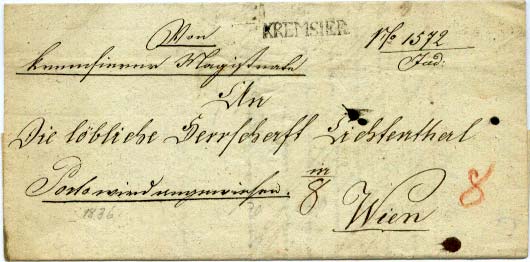 KREMSIER
Von
Kremsierer Magistrate
No 1572
Jud:
An
Die löbliche Herrschaft Lichtenthal
Porto wird angewiesen.
in
8
Wien
8
1836